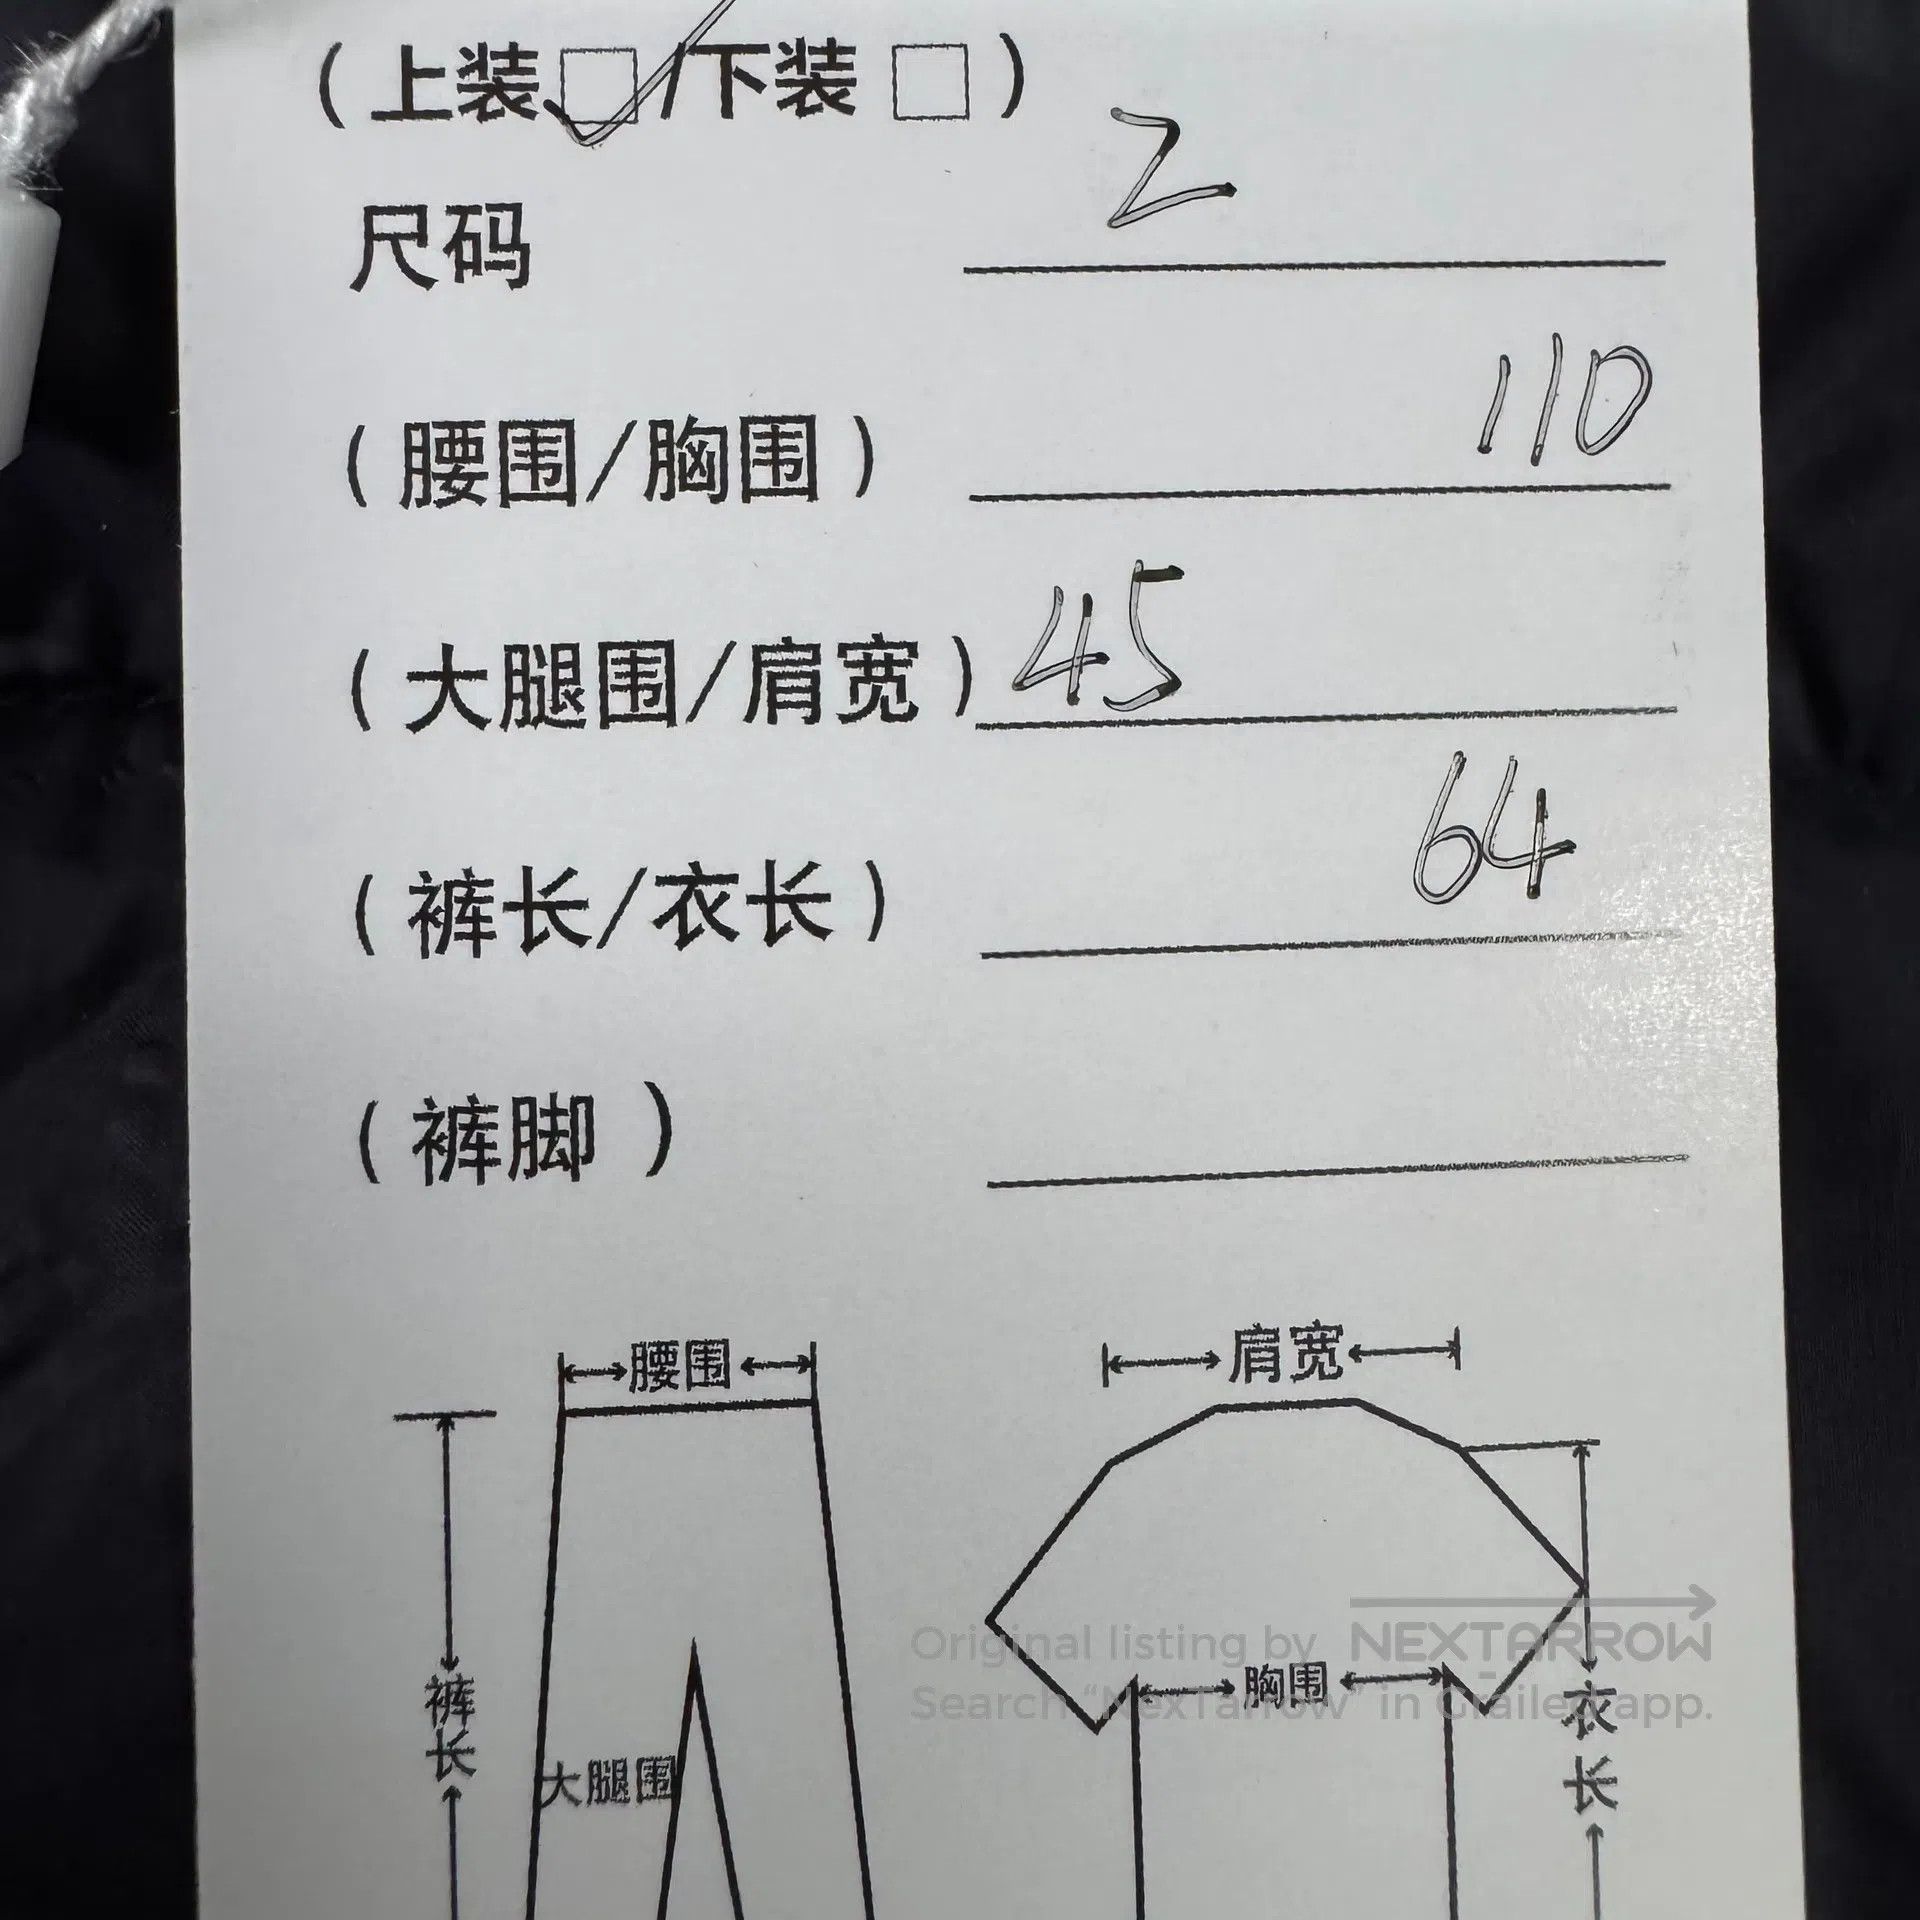 (上装□/下装□)
尺码 2
(腰围/胸围) 110
(大腿围/肩宽) 45
(裤长/衣长) 64
(裤脚)
腰围
肩宽
裤长
大腿围
胸围
衣长
Original listing by NEXTARROW
Search "NexTarrow" in Grailed app.